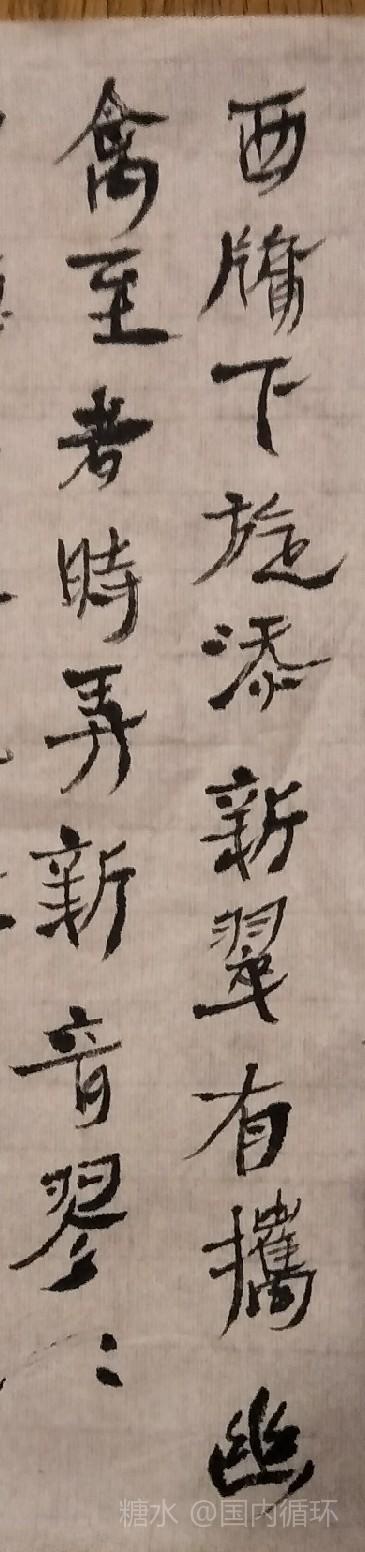 西牖下旋添新翠有攜幽
禽至者時弄新音翏〻
糖水 @国内循环